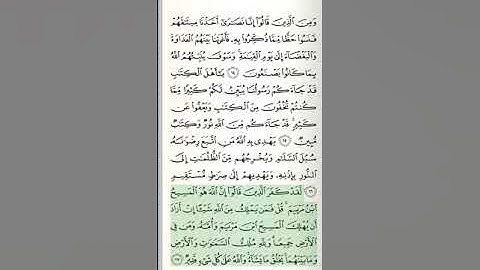 وَمِنَ ٱلَّذِينَ قَالُوٓا۟ إِنَّا نَصَٰرَىٰٓ أَخَذْنَا مِيثَٰقَهُمْ
فَنَسُوا۟ حَظًّا مِّمَّا ذُكِّرُوا۟ بِهِۦ فَأَغْرَيْنَا بَيْنَهُمُ ٱلْعَدَاوَةَ
وَٱلْبَغْضَآءَ إِلَىٰ يَوْمِ ٱلْقِيَٰمَةِ ۚ وَسَوْفَ يُنَبِّئُهُمُ ٱللَّهُ
بِمَا كَانُوا۟ يَصْنَعُونَ ١٤ يَٰٓأَهْلَ ٱلْكِتَٰبِ
قَدْ جَآءَكُمْ رَسُولُنَا يُبَيِّنُ لَكُمْ كَثِيرًا مِّمَّا
كُنتُمْ تُخْفُونَ مِنَ ٱلْكِتَٰبِ وَيَعْفُوا۟ عَن
كَثِيرٍ ۚ قَدْ جَآءَكُم مِّنَ ٱللَّهِ نُورٌ وَكِتَٰبٌ
مُّبِينٌ ١٥ يَهْدِى بِهِ ٱللَّهُ مَنِ ٱتَّبَعَ رِضْوَٰنَهُۥ
سُبُلَ ٱلسَّلَٰمِ وَيُخْرِجُهُم مِّنَ ٱلظُّلُمَٰتِ إِلَى
ٱلنُّورِ بِإِذْنِهِۦ وَيَهْدِيهِمْ إِلَىٰ صِرَٰطٍ مُّسْتَقِيمٍ
١٦ لَّقَدْ كَفَرَ ٱلَّذِينَ قَالُوٓا۟ إِنَّ ٱللَّهَ هُوَ ٱلْمَسِيحُ
ٱبْنُ مَرْيَمَ ۚ قُلْ فَمَن يَمْلِكُ مِنَ ٱللَّهِ شَيْـًٔا إِنْ أَرَادَ
أَن يُهْلِكَ ٱلْمَسِيحَ ٱبْنَ مَرْيَمَ وَأُمَّهُۥ وَمَن فِى
ٱلْأَرْضِ جَمِيعًا ۗ وَلِلَّهِ مُلْكُ ٱلسَّمَٰوَٰتِ وَٱلْأَرْضِ
وَمَا بَيْنَهُمَا ۚ يَخْلُقُ مَا يَشَآءُ ۚ وَٱللَّهُ عَلَىٰ كُلِّ شَىْءٍ قَدِيرٌ ١٧